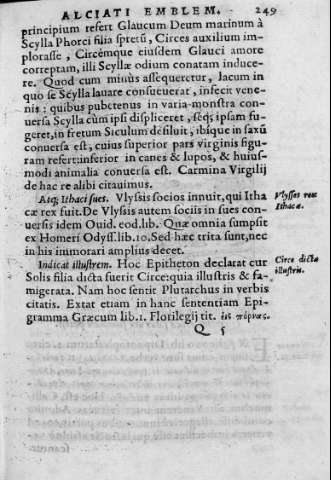 ALCIATI EMBLEM. 249
principium refert Glaucum Deum marinum à
Scylla Phorci filia spretũ, Circes auxilium im-
plorasse, Circémque eiusdem Glauci amore
correptam, illi Scyllæ odium conatam inducere-
re. Quod cum minùs assequeretur, lacum in
quo se Scylla lauare consueuerat, infecit vene-
nis: quibus pubetenus in varia monstra con-
uersa Scylla cùm ipsi displiceret, seq; ipsam fu-
geret, in fretum Siculum desiluit, ibíque in saxũ
conuersa est, cuius superior pars virginis figu-
ram refert: inferior in canes & lupos, & huius-
modi animalia conuersa est. Carmina Virgilij
de hac re alibi citauimus.
Atq; Ithaci sues. Vlyssis socios innuit, qui Itha
cæ rex fuit. De Vlyssis autem sociis in sues con-
uersis idem Ouid. eod. lib. Quæ omnia sumpsit
ex Homeri Odyss. lib. 10. Sed hæc trita sunt, nec
in his immorari amplius decet.
Indicat illustrem. Hoc Epitheton declarat cur
Solis filia dicta fuerit Circe: quia illustris & fa-
migerata. Nam hoc sentit Plutarchus in verbis
citatis. Extat etiam in hanc sententiam Epi-
gramma Græcum lib. 1. Florilegij tit. εἰς πόρνας.
Q 5
Vlysses rex
Ithacæ.
Circe dicta
illustris.